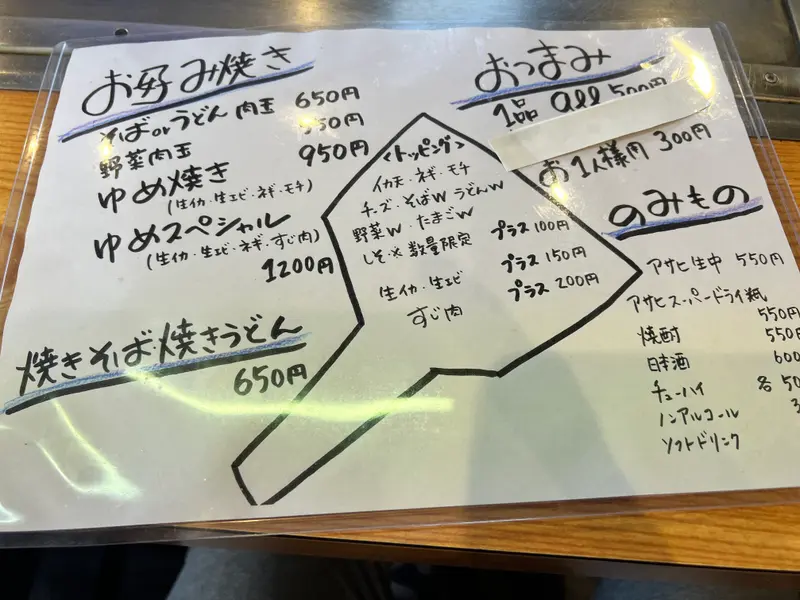 お好み焼き
そばorうどん 肉玉 650円
野菜肉玉 550円
ゆめ焼き 950円
(生イカ・生エビ・ネギ・モチ)
ゆめスペシャル
(生イカ・生エビ・ネギ・すじ肉)
1200円
焼きそば・焼きうどん
650円
<トッピング>
イカ天・ネギ・モチ
チーズ・そばW・うどんW
野菜W・たまごW
しそ・※数量限定 プラス100円
生イカ・生エビ プラス150円
すじ肉 プラス200円
おつまみ
1品 all 500円
お1人様用 300円
のみもの
アサヒ生中 550円
アサヒスーパードライ瓶
550円
焼酎 550
日本酒 600
チューハイ 各50
ノンアルコール 3
ソフトドリンク